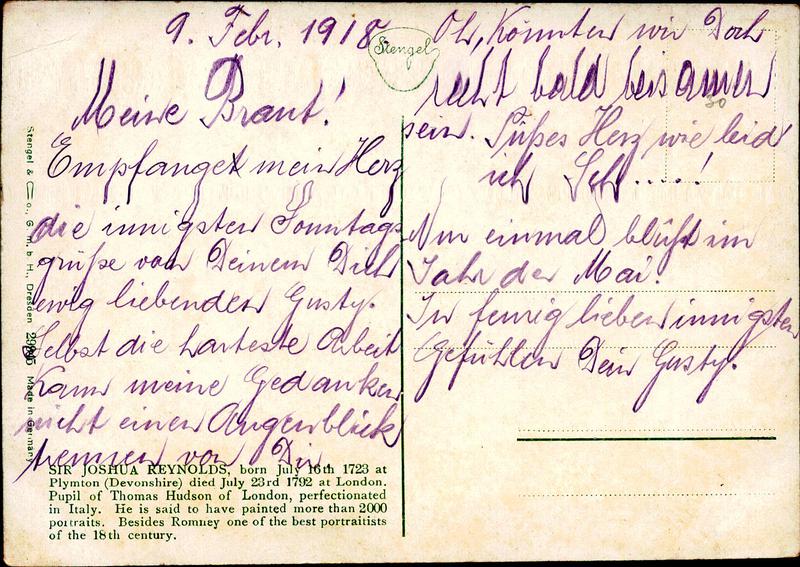 9. Febr. 1918
Meine Braut!
Empfanget mein Herz
die innigsten Sonntags
grüße von Deinem Dich
ewig liebenden Gusty.
Selbst die harteste Arbeit
Kann meine Gedanken
nicht einen Augenblick
trennen von Dir
SIR JOSHUA REYNOLDS, born July 16th 1723 at
Plymton (Devonshire) died July 23rd 1792 at London.
Pupil of Thomas Hudson of London, perfectionated
in Italy. He is said to have painted more than 2000
portraits. Besides Romney one of the best portraitists
of the 18th century.
Stengel & Co., G. m. b. H., Dresden Made in Germany
Stengel
Oh, Könnten wir Doch
recht bald beisamen
sein. Süßes Herz wie leid
ich Seh.....!
Nur einmal blüht im
Jahr der Mai.
In feurig lieben innigsten
Gefühlen Dein Gusty.
30